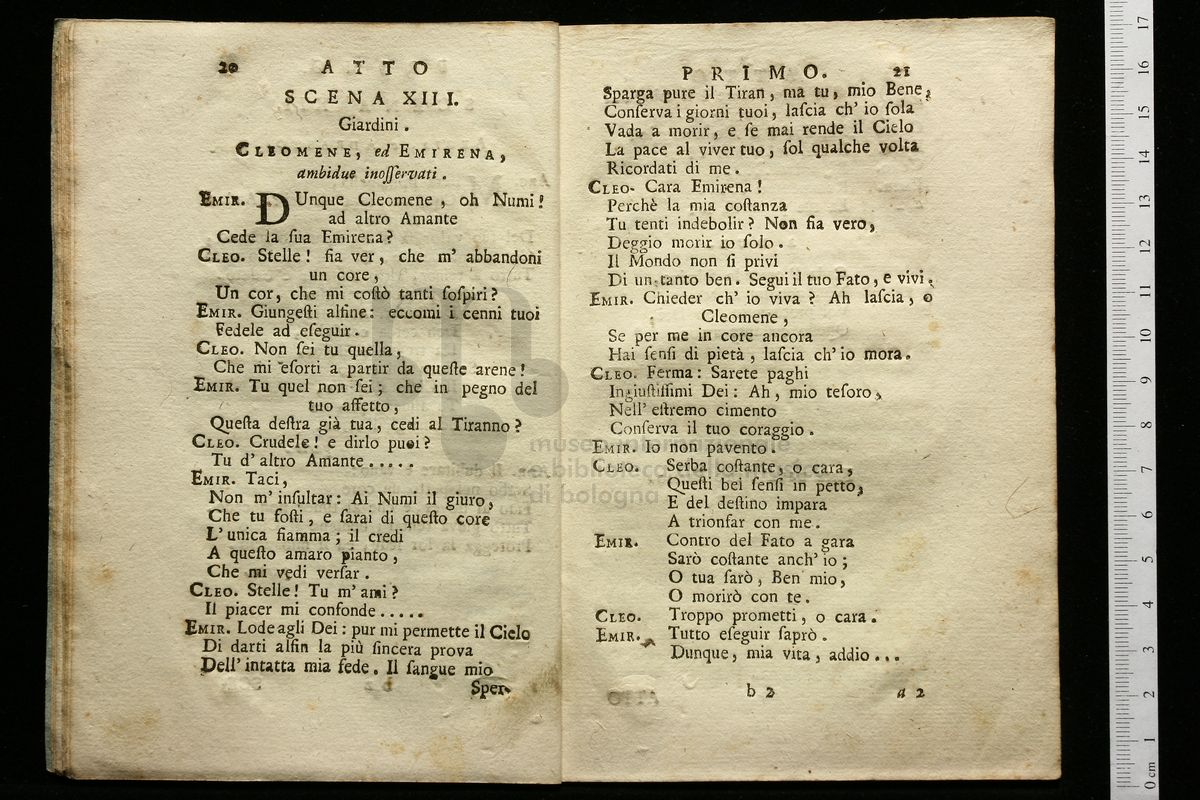 20 ATTO
SCENA XIII.
Giardini.
CLEOMENE, ed EMIRENA,
ambidue inoſſervati.
EMIR. DUnque Cleomene, oh Numi!
ad altro Amante
Cede la ſua Emirena?
CLEO. Stelle! ſia ver, che m' abbandoni
un core,
Un cor, che mi coſtò tanti ſoſpiri?
EMIR. Giungeſti alfine: eccomi i cenni tuoi
Fedele ad eſeguir.
CLEO. Non ſei tu quella,
Che mi eſorti a partir da queſte arene!
EMIR. Tu quel non ſei; che in pegno del
tuo affetto,
Queſta deſtra già tua, cedi al Tiranno?
CLEO. Crudele! e dirlo puoi?
Tu d' altro Amante.....
EMIR. Taci,
Non m' inſultar: Ai Numi il giuro,
Che tu foſti, e ſarai di queſto core
L' unica fiamma; il credi
A queſto amaro pianto,
Che mi vedi verſar.
CLEO. Stelle! Tu m' ami?
Il piacer mi confonde.....
EMIR. Lode agli Dei: pur mi permette il Cielo
Di darti alfin la più ſincera prova
Dell' intatta mia fede. Il ſangue mio
Sper-
PRIMO. 21
Sparga pure il Tiran, ma tu, mio Bene,
Conſerva i giorni tuoi, laſcia ch' io ſola
Vada a morir, e ſe mai rende il Cielo
La pace al viver tuo, ſol qualche volta
Ricordati di me.
CLEO. Cara Emirena!
Perchè la mia coſtanza
Tu tenti indebolir? Non ſia vero,
Deggio morir io ſolo.
Il Mondo non ſi privi
Di un tanto ben. Segui il tuo Fato, e vivi.
EMIR. Chieder ch' io viva? Ah laſcia, o
Cleomene,
Se per me in core ancora
Hai ſenſi di pietà, laſcia ch' io mora.
CLEO. Ferma: Sarete paghi
Ingiuſtiſſimi Dei: Ah, mio teſoro,
Nell' eſtremo cimento
Conſerva il tuo coraggio.
EMIR. Io non pavento.
CLEO. Serba coſtante, o cara,
Queſti bei ſenſi in petto,
E del deſtino impara
A trionfar con me.
EMIR. Contro del Fato a gara
Sarò coſtante anch' io;
O tua ſarò, Ben mio,
O morirò con te.
CLEO. Troppo prometti, o cara.
EMIR. Tutto eſeguir ſaprò.
Dunque, mia vita, addio...
b 2 a 2
museo internazionale
e biblioteca della musica
di bologna
0 cm 1 2 3 4 5 6 7 8 9 10 11 12 13 14 15 16 17